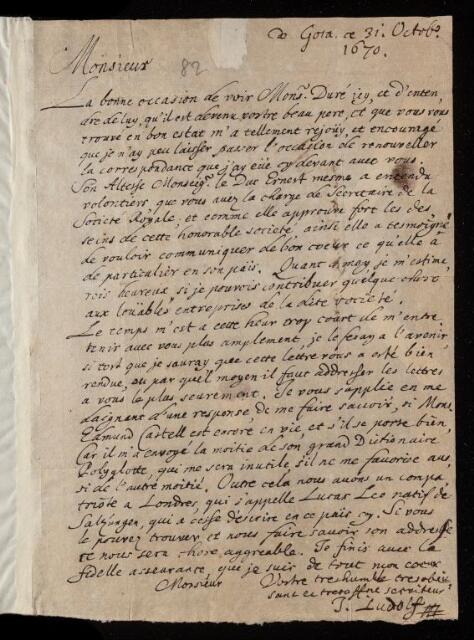 de Gota, ce 31. Octobr.
1670.
Monsieur
82
La bonne occasion de voir Monsr. Dure icy, et d'enten
dre de luy, qu'il est devenu vostre beau pere, et que vous vous
trouvé en bon estat m'a tellement rejouy, et encouragé
que je n'ay peu laisser passer l'occasion de renouveller
la correspondance que j'ay eüe cy devant avec vous.
Son Altesse Monseigr. le Duc Ernest mesme a entendu
volontiers que vous avez la charge de Secretaire de la
Societé Royale, et comme elle approuve fort les des
seins de cette honorable societé, ainsi elle a tesmoigné
de vouloir communiquer de bon coeur ce qu'elle a
de particulier en son païs. Quant a moy, je m'estime
rois heureux si je pourois contribuer quelque chose
aux loüables entreprises de la dite societé.
Le temps m'est a cette heur trop court de m'entre
tenir avec vous plus amplement, je le feray a l'avenir,
si tost que je sauray que cette lettre vous a esté bien
rendue, ou par quel moyen il faut addresser les lettres
a vous le plus seurement. Je vous supplie en me
daignant d'une response de me faire savoir, si Mons.
Edmund Castell est encore en vie, et s'il se porte bien,
Car il m'a envoyé la moitie de son grand Dictionaire
Polyglotte, qui me sera inutile, s'il ne me favorise aus
si de l'autre moitié. Outre cela nous avons un compa
triote a Londres, qui s'appelle Lucas Leo natif de
Saltzungen, qui a cessé d'escrire en ce païs cy. Si vous
le pouvez trouver, et nous faire savoir son addresse
ce nous sera chose aggreable. Je finis avec la
fidelle asseurance, que je suis de tout mon coeur
Monsieur Vostre treshumble tresobeis
sant et serviteur
J. Ludolf